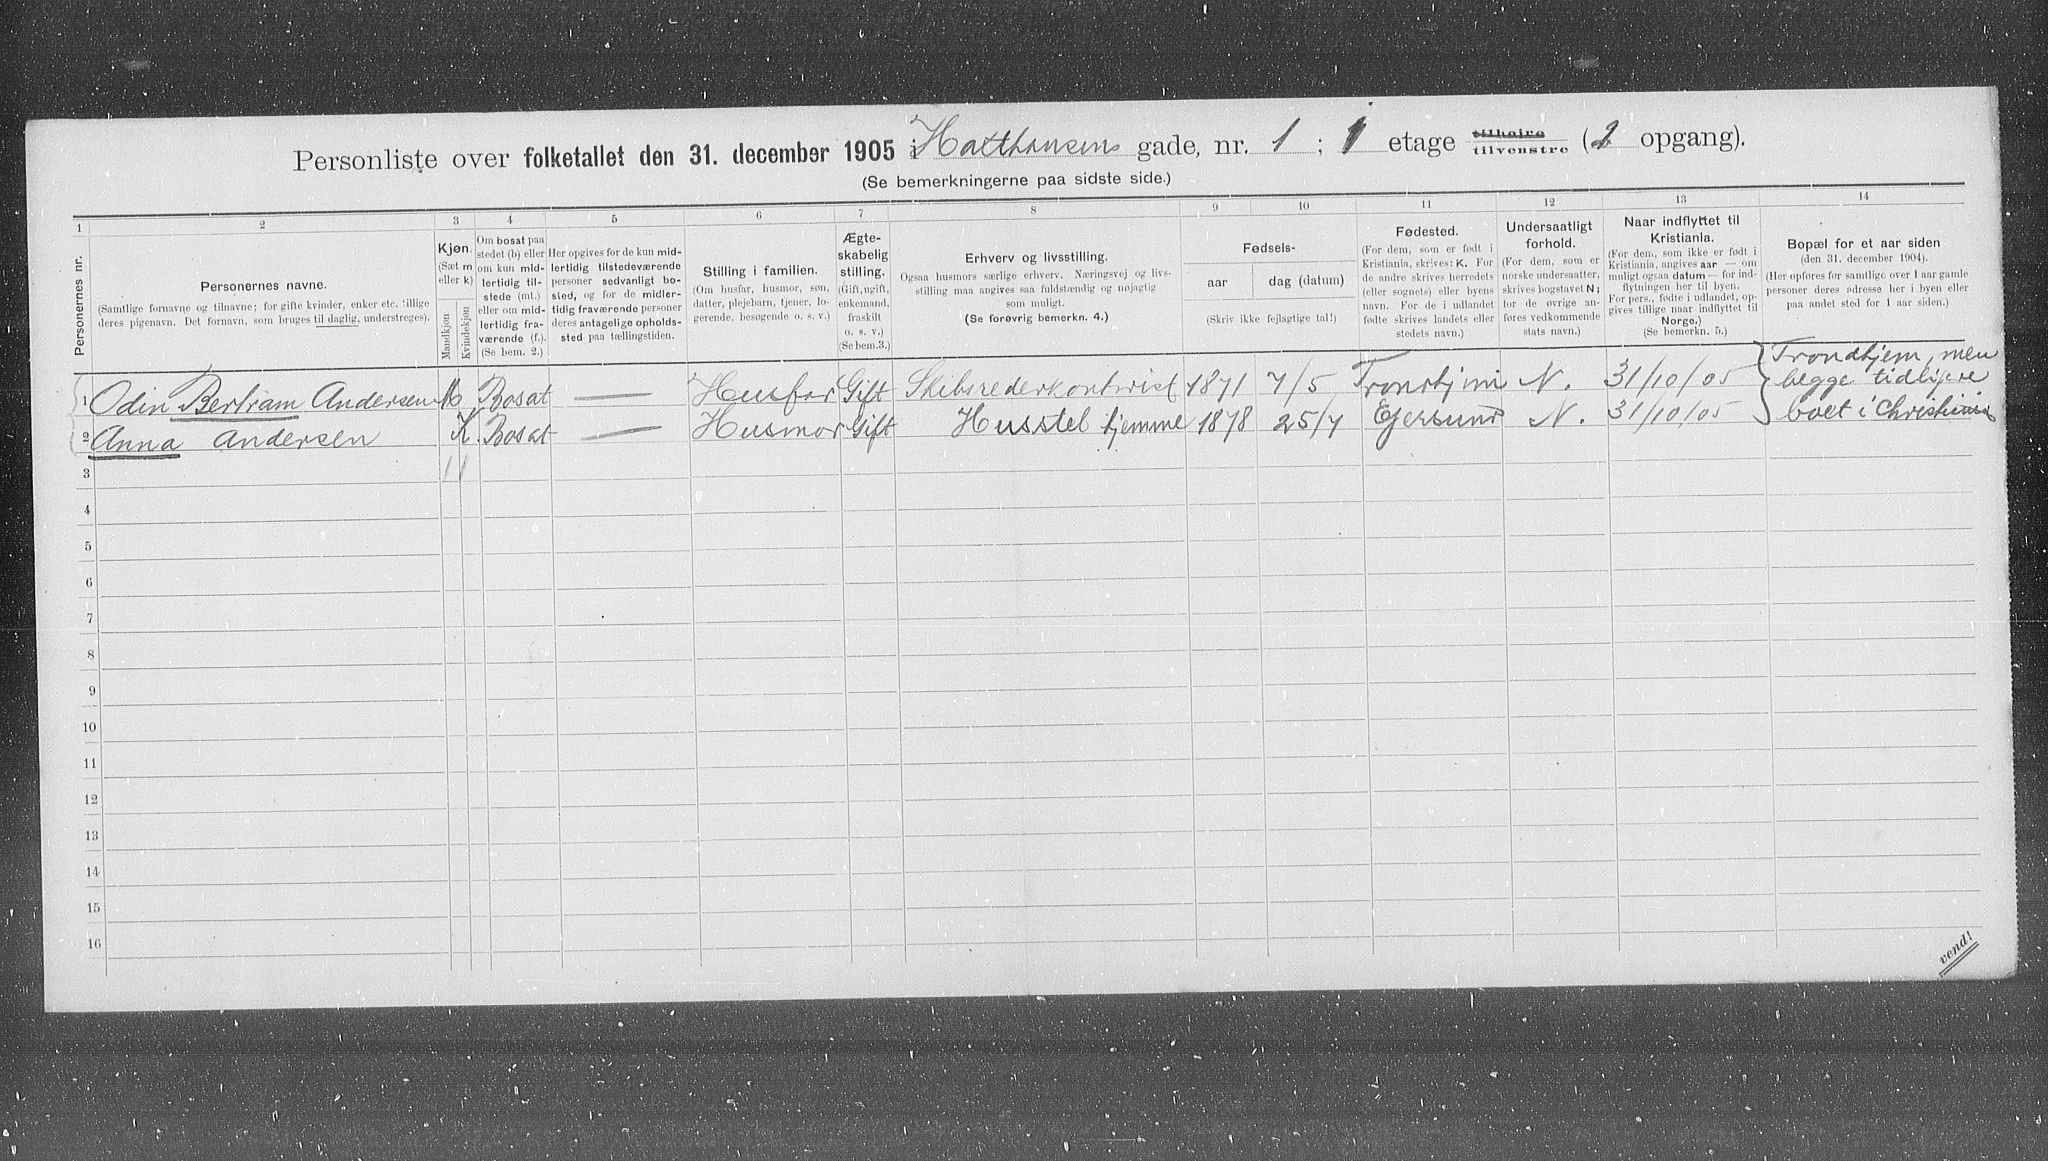 Personliste over folketallet den 31. december 1905 i Halthausens gade, nr. 1 ; 1 etage tilhøire tilvenstre (2 opgang).
(Se bemerkningerne paa sidste side.)
1 2 3 4 5 6 7 8 9 10 11 12 13 14
Personernes nr.
Personernes navne.
(Samtlige fornavne og tilnavne; for gifte kvinder, enker etc. tillige
deres pigenavn. Det fornavn, som bruges til daglig, understreges).
Kjøn.
(Sæt m
eller k)
Mandkjøn
Kvindekjøn
Om bosat paa
stedet (b) eller
om kun mid-
lertidig til-
stede (mt.)
eller om mid-
lertidig fra-
værende (f.).
(Se bem. 2.)
Her opgives for de kun mid-
lertidig tilstedeværende
personer sedvanligt bo-
sted, og for de midler-
tidig fraværende personer
deres antagelige opholds-
sted paa tællingstiden.
Stilling i familien.
(Om husfar, husmor, søn,
datter, plejebarn, tjener, lo-
gerende, besøgende o. s. v.)
Ægte-
skabelig
stilling.
(Gift, ugift,
enkemand,
fraskilt
o. s. v.)
(Se bem. 3.)
Erhverv og livsstilling.
Ogsaa husmors særlige erhverv. Næringsvej og livs-
stilling maa angives saa fuldstændig og nøjagtig
som muligt.
(Se forøvrig bemerkn. 4.)
Fødsels-
aar
dag (datum)
(Skriv ikke fejlagtige tal!)
Fødested.
(For dem, som er født i
Kristiania, skrives: K. For
de andre skrives herredets
(eller sognets) eller byens
navn. For de i udlandet
fødte skrives landets eller
stedets navn.)
Undersaatligt
forhold.
(For dem, som er
norske undersaatter,
skrives bogstavet N;
for de øvrige an-
føres vedkommende
stats navn.)
Naar indflyttet til
Kristiania.
(For dem, som ikke er født i
Kristiania, angives aar — om
muligt ogsaa datum — for ind-
flytningen her til byen.
For pers., fødte i udlandet, op-
gives tillige naar indflyttet til
Norge.)
(Se bemerkn. 5.)
Bopæl for et aar siden
(den 31. december 1904).
(Her opføres for samtlige over 1 aar gamle
personer deres adresse her i byen eller
paa andet sted for 1 aar siden.)
1 Odin Bertram Andersen M Bosat — Husfar Gift Skibsrederkontorist 1871 7/5 Trondhjem N. 31/10/05 Trondhjem, men
begge tidligere
2 Anna Andersen K Bosat — Husmor Gift Husstel hjemme 1878 25/7 Egersund N. 31/10/05 boet i Christiania
3
4
5
6
7
8
9
10
11
12
13
14
15
16
vend!